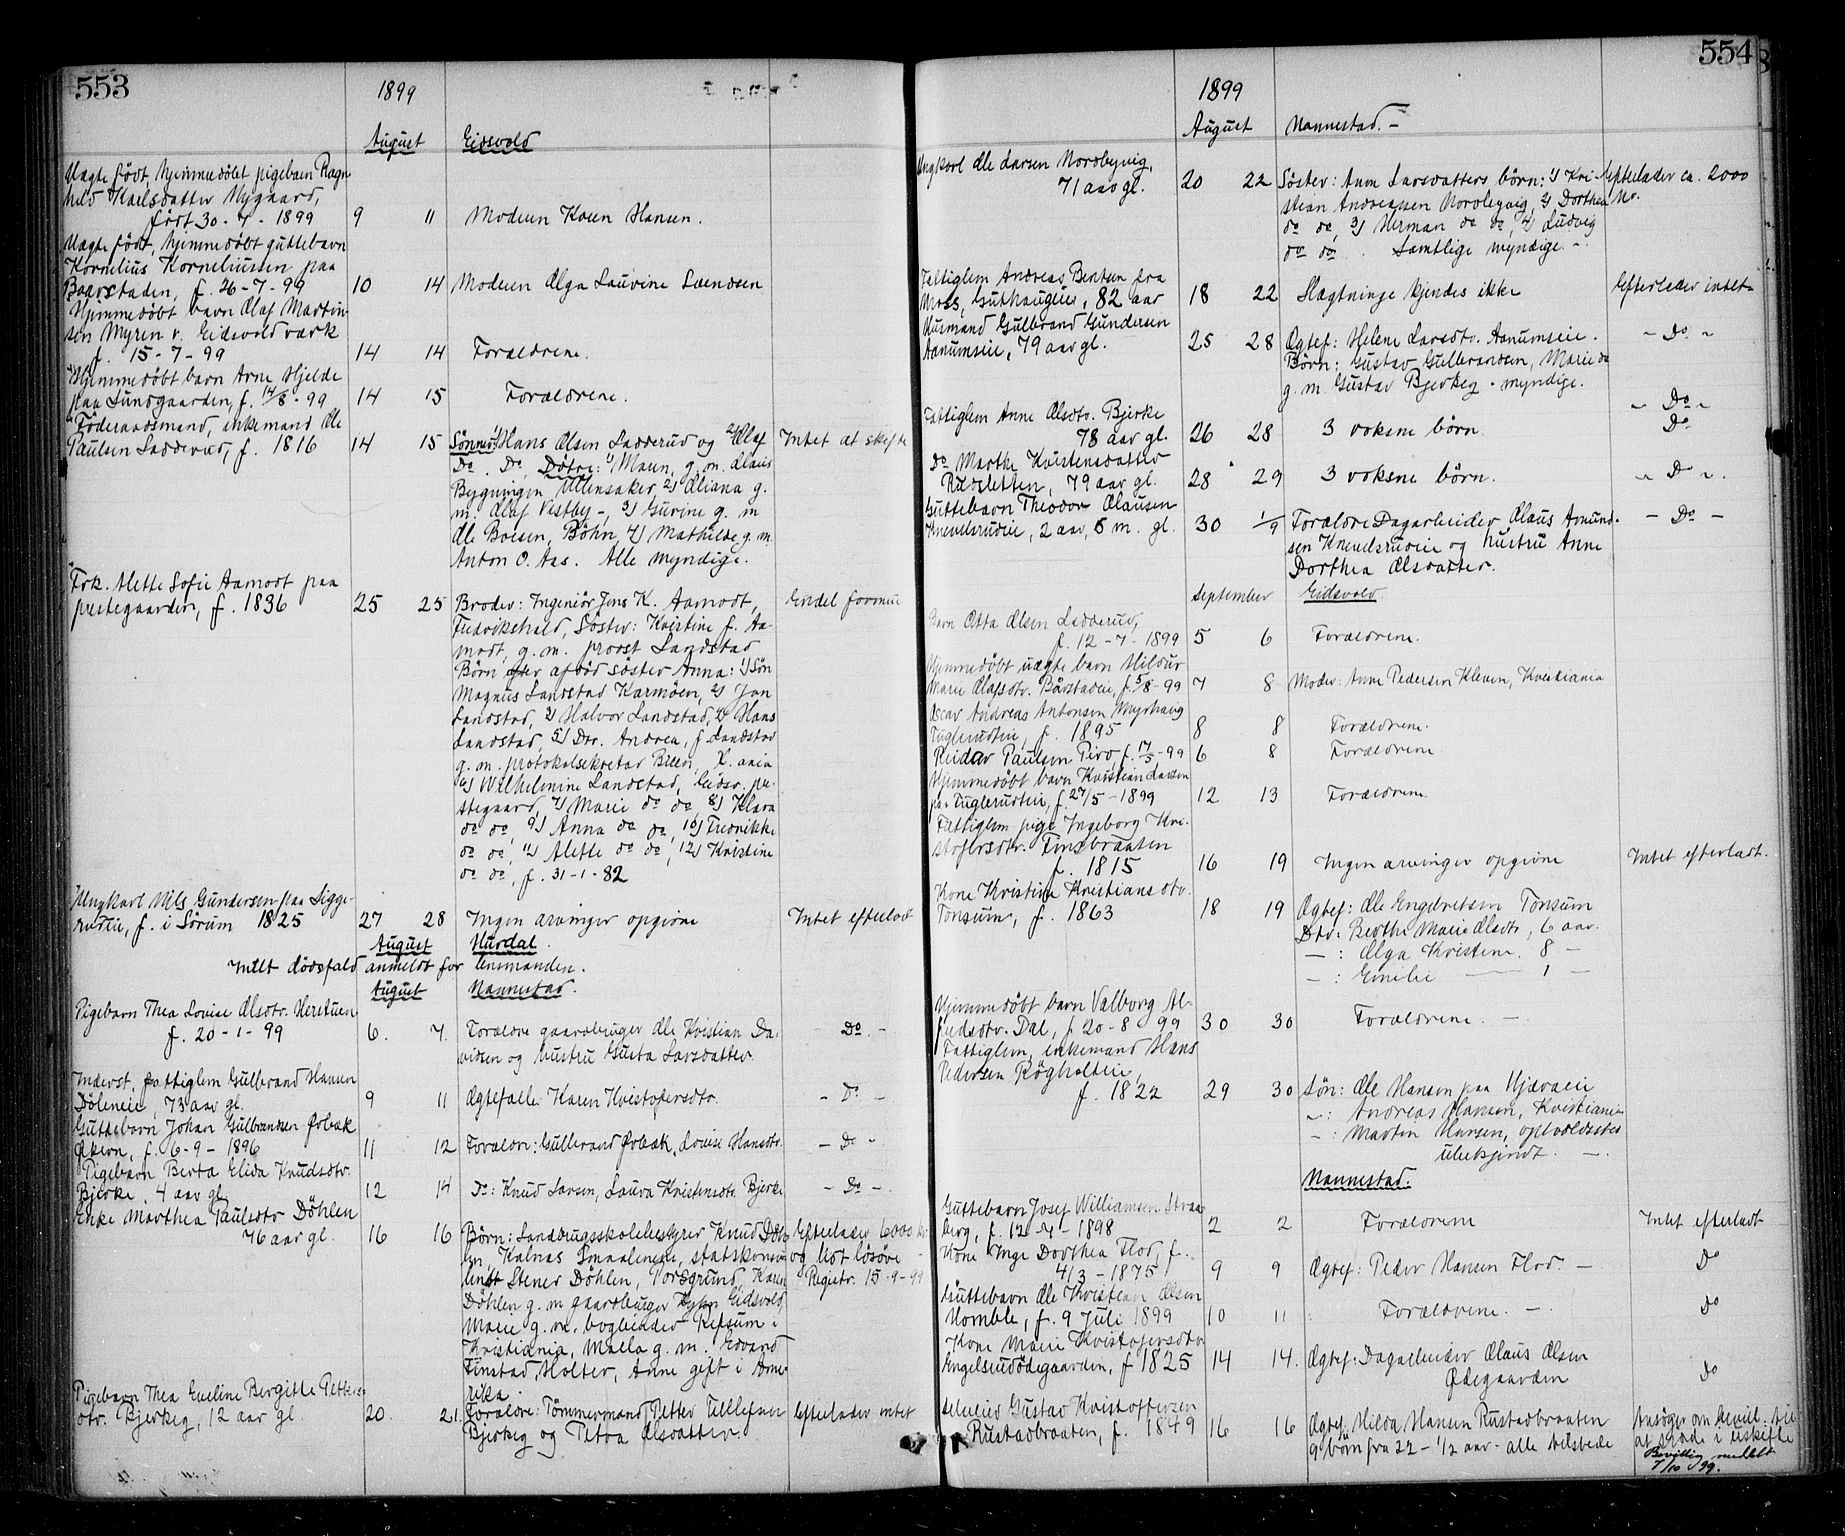 553
1899
August Eidsvold
Uægte född, hjemmedöbt pigebarn Ragn
hild Karlsdatter Nygaard,
födt 30-7-1899 9 11 Moderen Karen Hansen.
Uægte födt, hjemmedöbt guttebarn
Kornelius Korneliussen paa
Baarstaden, f. 26-7-99 10 14 Moderen Olga Lauvine Svendsen
Hjemmedöbt barn Olaf Martin-
sen Myren v. Eidsvold værk
f. 15-7-99 14 14 Forældrene.
Hjemmedöbt barn Arne Hjelde
paa Lundgaarden, f. 14/8-99 14 15 Forældrene.
Föderaadsmand, enkemand Ole
Paulsen Ladderud, f. 1816 14 15 Sönner: 1) Hans Olsen Ladderud og 2) Olaf Intet at skifte
Do. Do. Dötre: 1) Maren, g. m. Olaus
Bygningen, Ullensaker, 2) Oliana g.
m. Olaf Vestby -, 3) Gurine g. m
Ole Boesen, Böhn, 4) Mathilde g. m.
Anton O. Aas. Alle myndige.
Frk. Alette Sofie Aamodt paa
prestegaarden, f. 1836 25 25 Broder: Ingeniör Jens K. Aamodt, Endel formue
Fredrikshald, Söster: Kristine f. Aa-
modt, g. m. provst Landstad
Börn efter afdöd söster Anna: 1) Sön
Magnus Landstad Karmöen, 2) Jan
Landstad, 3) Halvor Landstad, 4) Hans
Landstad, 5) Dtr. Andrea, f. Landstad
g. m. protokolsekretær Breen, K.ania
6) Wilhelmine Landstad, Eidsv. pre-
stegaard, 7) Marie do do 8) Klara
do do 9) Anna do do, 10) Fredrikke
do do, 11) Alette do do, 12) Kristine
do do, f. 31-1-82
Ungkarl Nils Gundersen paa Digge-
rudeie, f. i Sörum 1825 27 28 Ingen arvinger opgivne Intet efterladt
August Hurdal.
Intet dödsfald anmeldt for lensmanden.
August Nannestad.
Pigebarn Thea Louise Olsdtr. Herstuen
f. 20-1-99 6. 7. Forældre gaardbruger Ole Kristian Da- - Do. -
vidsen og hustru Gusta Larsdatter.
Inderst, fattiglem Gulbrand Hansen
Döleneie, 73 aar gl. 9 11 Ægtefælle: Karen Kristofersdtr. - Do -
Guttebarn Johan Gulbrandsen Örbæk
Ökern, f. 6-9-1896 11 12 Forældre: Gulbrand Örbæk, Louise Hansdtr. - Do -
Pigebarn Berta Elida Knudsdtr.
Bjerke, 4 aar gl. 12 14 Do: Knud Larsen, Laura Kristensdtr. Bjerke - Do -
Enke Marthea Paulsdtr Döhlen
76 aar gl. 16 16 Börn: Landbrugsskolebestyrer Knud Döh- Efterlader 6000 kr
len, Kalnæs Smaalenene, statskonsu- og lidt lösöre
lent Stener Döhlen, Porsgrund, Karen Registr. 15-9-99
Döhlen g. m gaardbruger Eidsvold
Marie g. m. bogbinder Refsum i
Kristiania, Malla g. m. Edvard
Finstad, Holter, Anne gift i Ame-
rika.
Pigebarn Thea Eveline Bergitte Petters-
dtr. Bjerkeg, 12 aar gl. 20. 21. Forældre: Tömmermand Petter Tellefsen Efterlader intet
Bjerkeg og Petra Olsdatter.
554
1899
August Nannestad. -
Ungkarl Ole Larsen Nordbyvig,
71 aar gl. 20 22 Söster: Anne Larsdatters börn: 1) Kri- Efterlader ca. 2000
stian Andreassen Nordbyvig, 2) Dorthea kr.
do do, 3) Herman do do, 4) Ludvig
do do. Samtlige myndige. -
Fattiglem Andreas Bentsen fra
Moss, Guthaugeie, 82 aar 18 22 Slægtninge kjendes ikke Efterlader intet
Husmand Gulbrand Gundersen
Aanumseie, 79 aar gl. 25 28 Ægtef: Helene Larsdtr. Aanumseie. - Do -
Börn: Gustav Gulbrandsen, Marie do
g. m. Gustav Bjerkeg. myndige.
- Do -
Fattiglem Anne Olsdtr. Bjerke
78 aar gl. 26 28 3 voksne börn. Do
Do Marthe Kristensdatter
Rudsletten, 79 aar gl. 28 29 3 voksne börn. - Do -.
Guttebarn Theodor Olausen
Kneulsrudeie, 2 aar, 5 m. gl. 30 1/9 Forældre Dagarbeider Olaus Amund- - Do -
sen Kneulsrudeie og hustru Anne
Dorthea Olsdatter.
September Eidsvold
Barn Otta Olsen Ladderud,
f. 12-7-1899 5 6 Forældrene.
Hjemmedöbt uægte barn Hildur
Marie Olafsdtr. Bårstadeie, f. 5/8-99 7 8 Moder: Anne Pedersen Kleven, Kristiania
Oscar Andreas Antonsen Myrhaug
Fuglerudeie, f. 1895 8 8 Forældrene.
Reidar Paulsen Piro, f. 17/5-99 6 8 Forældrene
Hjemmedöbt barn Kristian Larsen
paa Fuglerudeie, f. 27/5-1899 12 13 Forældrene
Fattiglem pige Ingeborg Kri-
stofersdtr. Finsbraaten
f. 1815 16 19 Ingen arvinger opgivne Intet efterladt.
Kone Kristine Kristiansdtr.
Tönsum, f. 1863 18 19 Ægtef: Ole Engebretsen Tönsum
Dtr: Berthe Marie Olsdtr, 6 aar.
- : Olga Kristine 8 -
- : Emilie — 1 -
Hjemmedöbt barn Valborg Al-
fredsdtr. Dal, f. 20-8 99 30 30 Forældrene. -
Fattiglem, enkemand Hans
Pedersen Rögholteie,
f. 1822 29 30 Sön: Ole Hansen paa Hjæraeie
-: Andreas Hansen, Kristiania
-: Martin Hansen, opholdssted
ubekjendt. -
Nannestad.
Guttebarn Josef Williamsen Straa
berg, f. 12-7-1898 2 2 Forældrene Intet efterladt
Kone Inge Dorthea Flod, f.
4/3-1875 9 9 Ægtef: Peder Hansen Flod. - Do
Guttebarn Ole Kristian Olsen
Homble, f. 9 Juli 1899 10 11 Forældrene. - Do
Kone Marie Kristofersdtr
Engelsrudödegaarden, f 1825 14 14. Ægtef: Dagarbeider Olaus Olsen Do
Ödegaarden
Gustav Kristoffersen
Rustadbraaten, f. 1849 16 16 Ægtef. Hilda Hansen Rustadbraaten Ansöger om bevill. til
9 börn fra 22 - 1/2 aar - alle tilstede at sidde i uskifte
Bevilling meddelt
7/10 99.